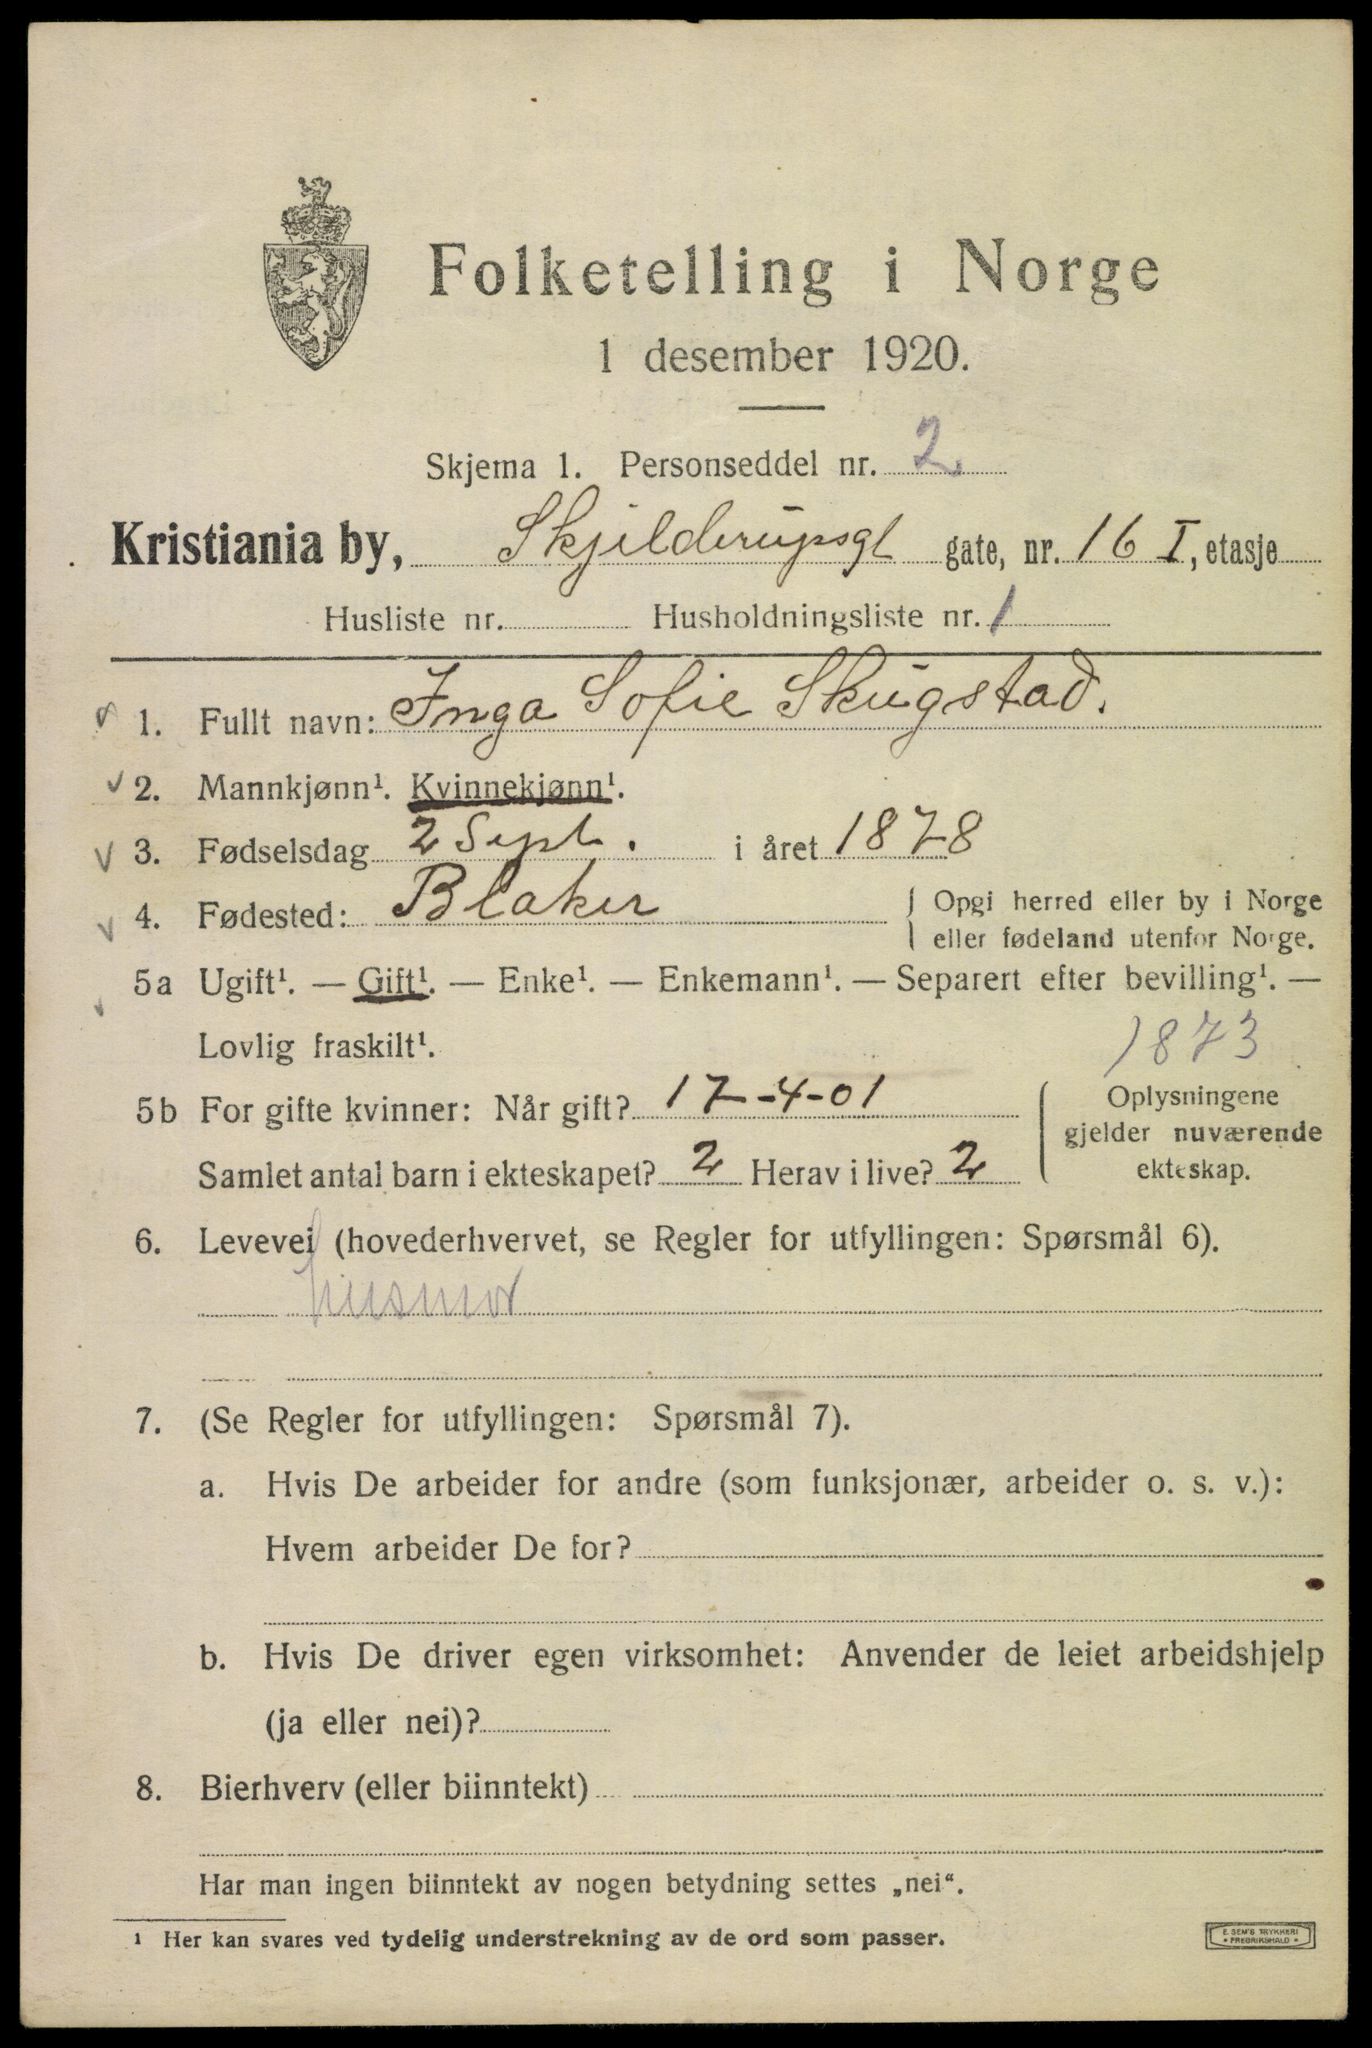 Folketelling i Norge
1 desember 1920.
Skjema 1. Personseddel nr. 2
Kristiania by, Skjelderupsgt gate, nr. 16 I, etasje
Husliste nr. Husholdningsliste nr. 1
1. Fullt navn: Inga Sofie Skugstad.
2. Mannkjønn¹. Kvinnekjønn¹.
3. Fødselsdag 2 Sept. i året 1878
4. Fødested: Blaker { Opgi herred eller by i Norge
eller fødeland utenfor Norge.
5a Ugift¹. — Gift¹. — Enke¹. — Enkemann¹. — Separert efter bevilling¹. —
Lovlig fraskilt¹.
1873
5b For gifte kvinner: Når gift? 17-4-01
Samlet antal barn i ekteskapet? 2 Herav i live? 2
{ Oplysningene
gjelder nuværende
ekteskap.
6. Levevei (hovederhvervet, se Regler for utfyllingen: Spørsmål 6).
husmor
7. (Se Regler for utfyllingen: Spørsmål 7).
a. Hvis De arbeider for andre (som funksjonær, arbeider o. s. v.):
Hvem arbeider De for?
b. Hvis De driver egen virksomhet: Anvender de leiet arbeidshjelp
(ja eller nei)?
8. Bierhverv (eller biinntekt)
Har man ingen biinntekt av nogen betydning settes „nei“.
¹ Her kan svares ved tydelig understrekning av de ord som passer.
E. SEM'S TRYKKERI
• FREDRIKSHALD •